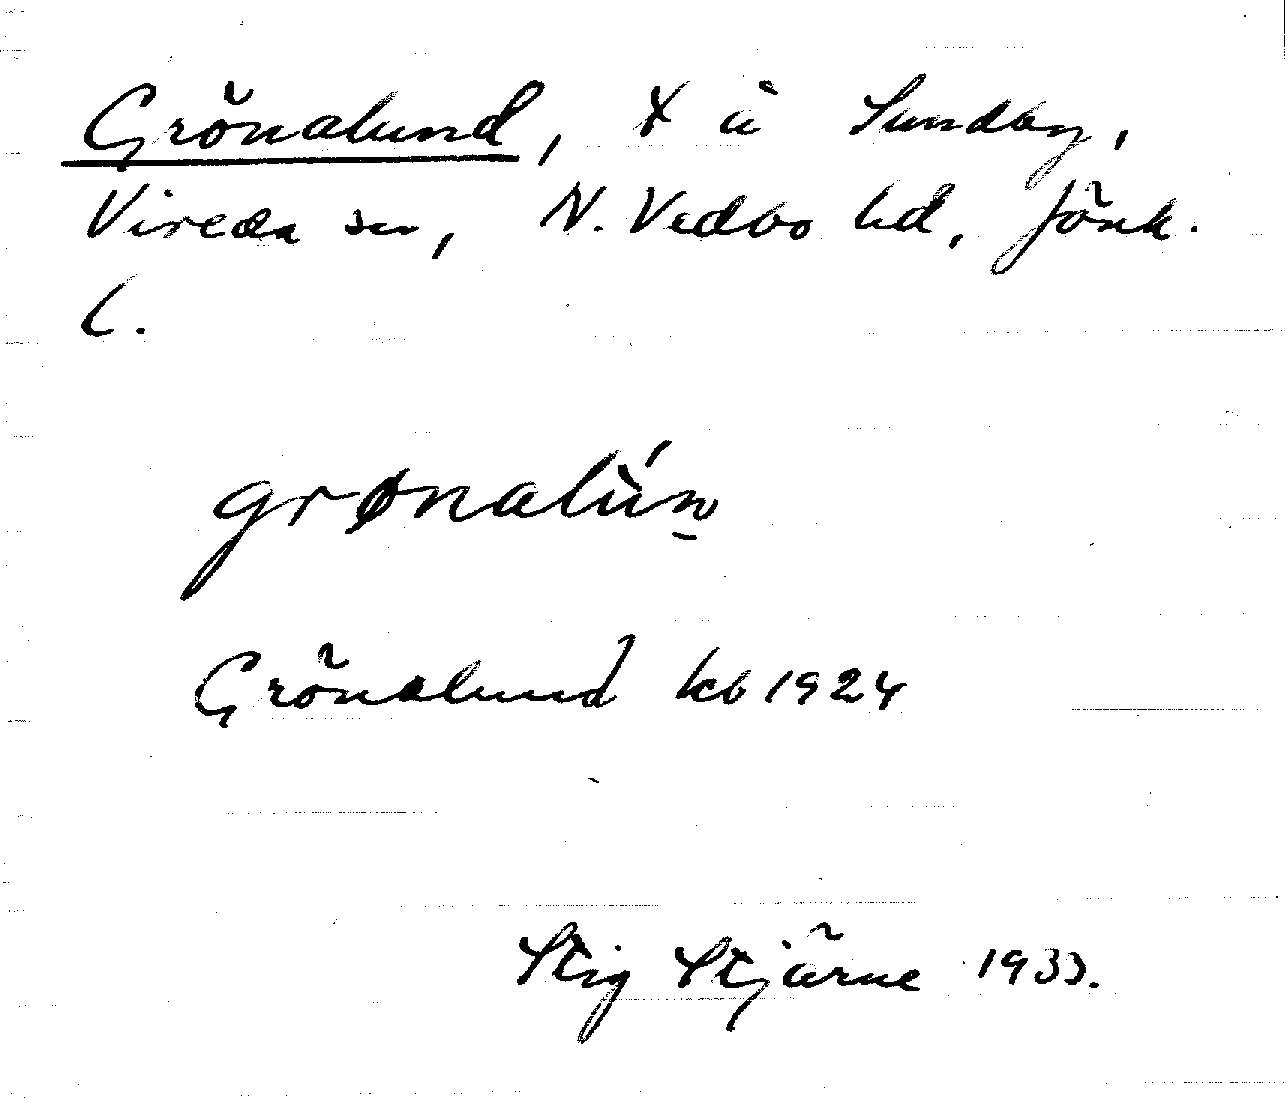 Grönalund, t å Sundby,
Vireda sn, N. Vedbo hd, Jönk.
l.
grønalún̠
Grönalund kb 1924
Stig Stjärne 1933.